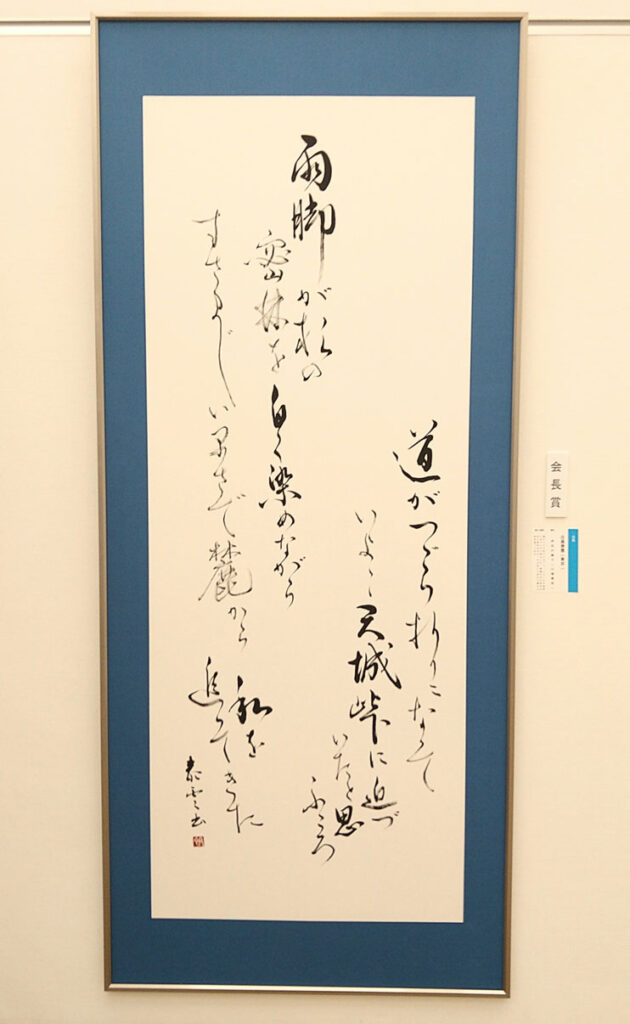 道がつづら折りになって
いよいよ天城峠に近づ
いたと思
ふころ
雨脚が杉の
密林を白く染めながら
すさまじい早さで麓から
私を
追ってきた
会長賞